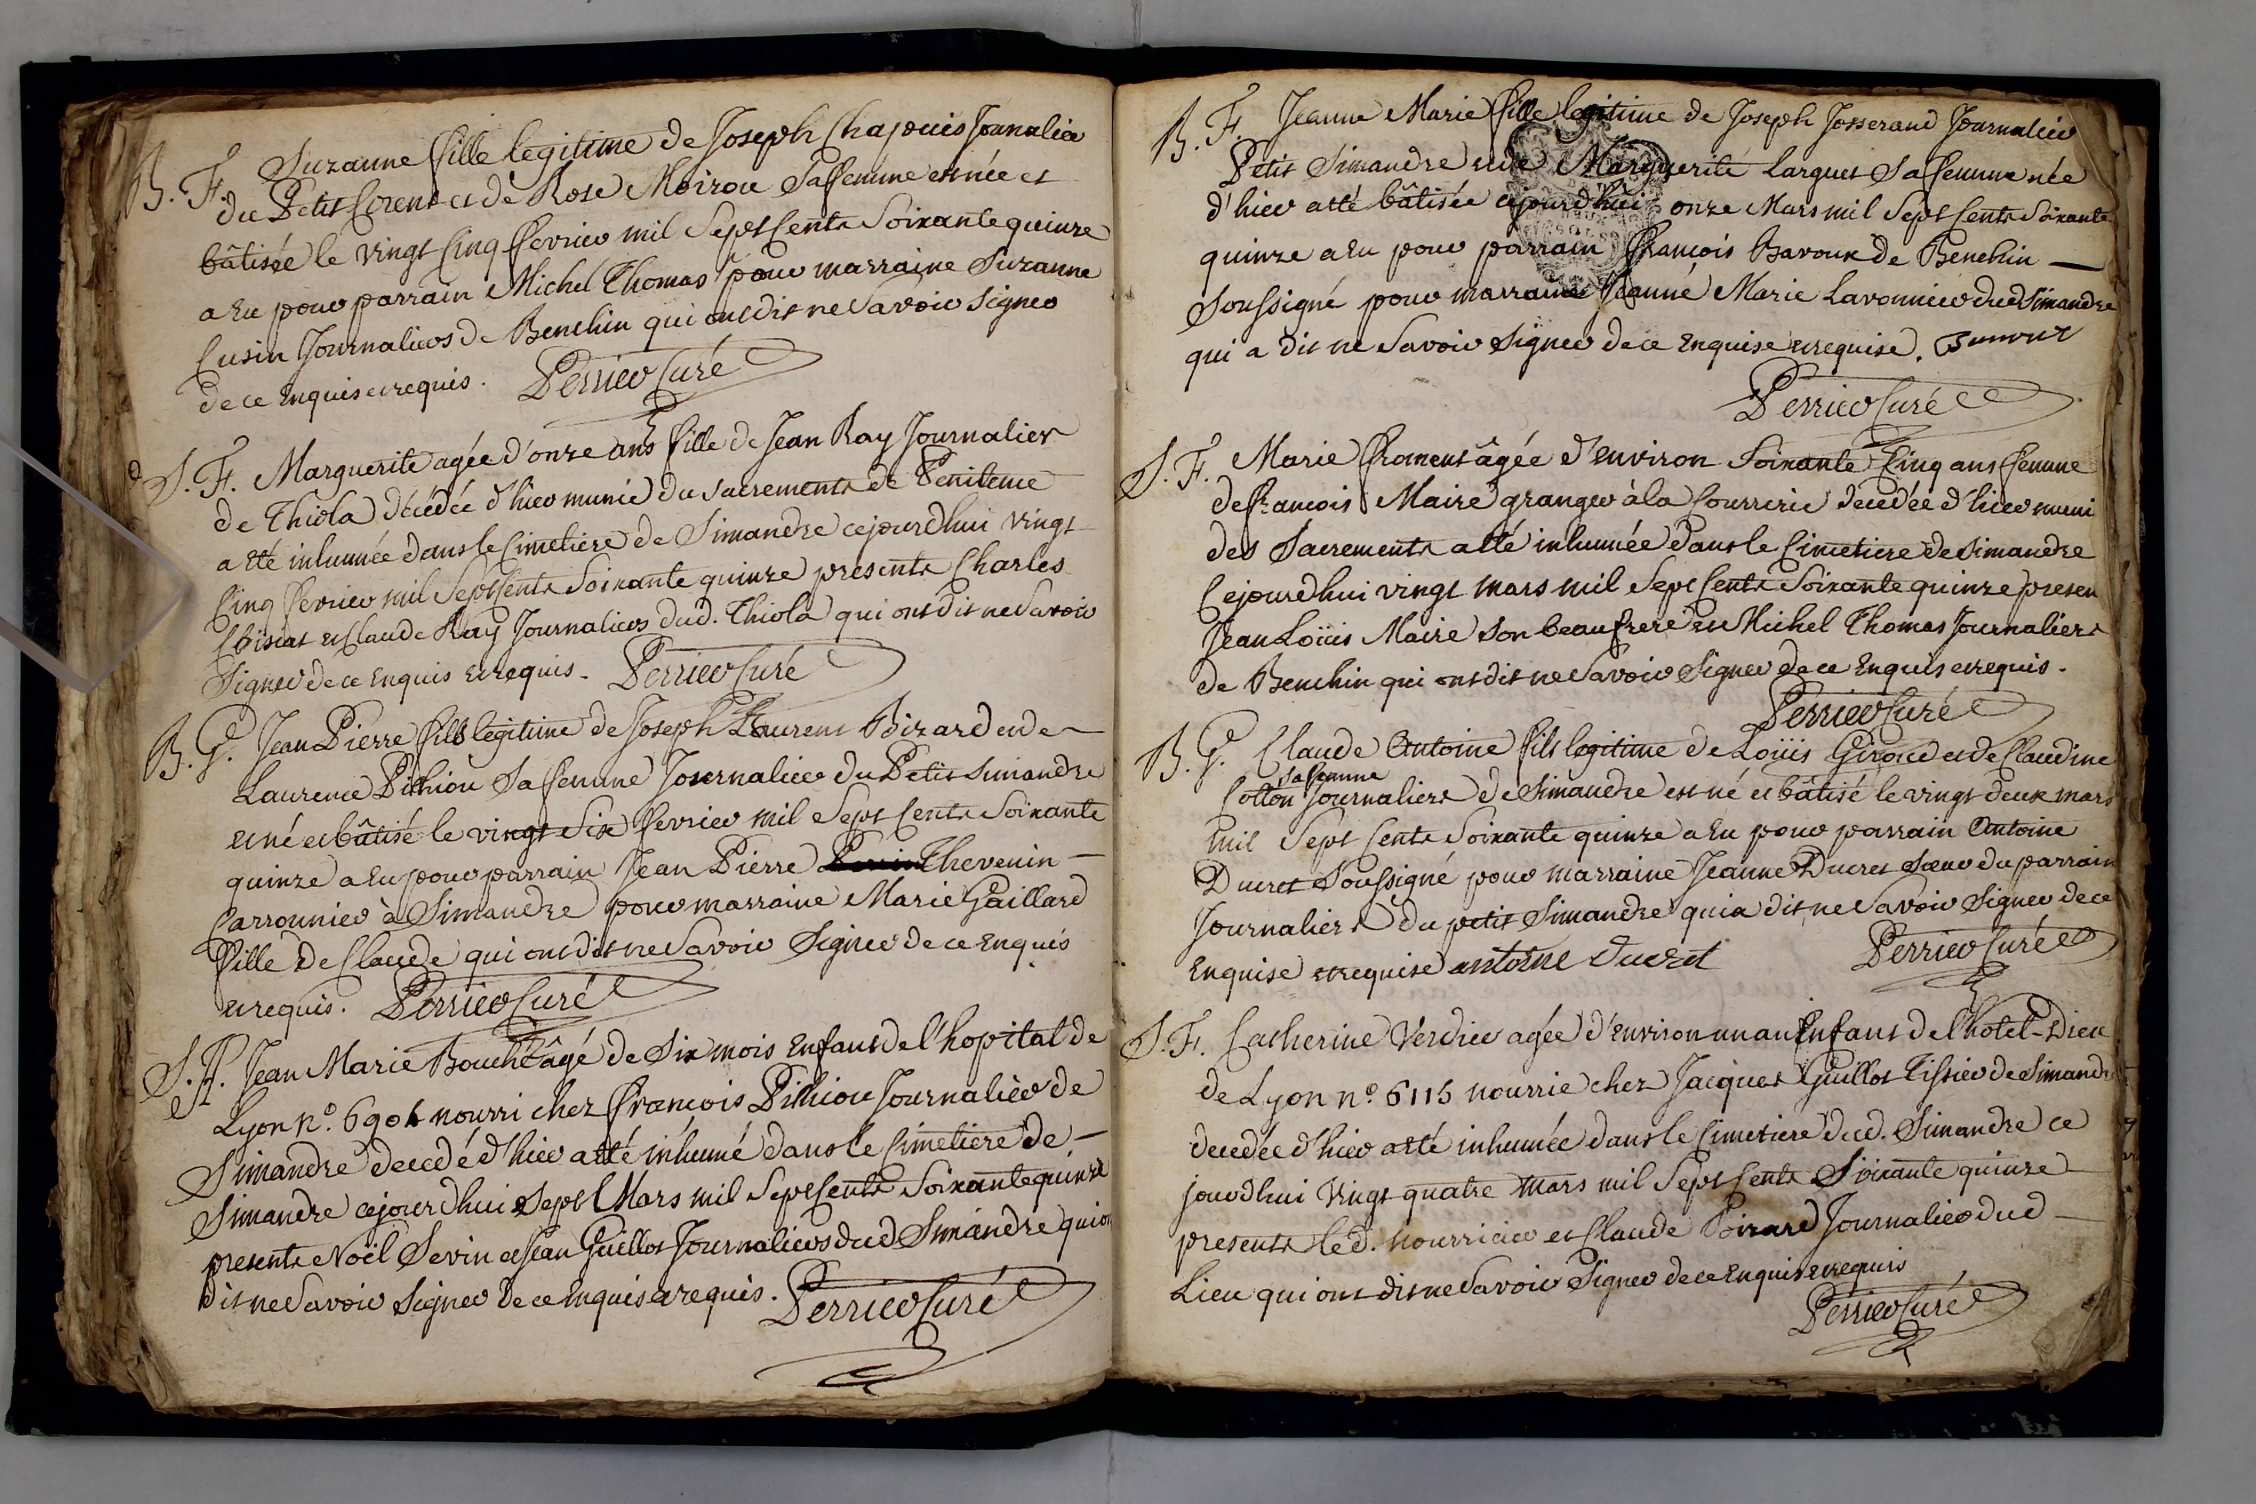 B. F. Suzanne fille legitime de Joseph Chapuis Journalier
du Petit Corent et de Rose Moirou sa femme est née et
bâtisée le vingt Cinq fevrier mil Sept Cents Soixante quinze
a Eu pour parrain Michel Thomas pour marraine Suzanne
Cusin Journaliers de Benchin qui ont dit ne savoir signer
de ce Enquis et requis. Perrier Curé
S. F. Marguerite agée d'onze ans fille de Jean Ray Journalier
de Thiola décédée d'hier munie du sacrements de Penitence
a été inhumée dans le Cimetiere de Simandre cejourdhui vingt
Cinq fevrier mil Sept Cents Soixante quinze presents Charles
et Claude Ray Journaliers dud. Thiola qui ont dit ne savoir
signer de ce Enquis et requis. Perrier Curé
B. G. Jean Pierre fils legitime de Joseph Laurent Bizard et de
Laurence Pithiou sa femme Journaliers du Petit Simandre
est né et bâtisé le vingt Six fevrier mil Sept Cents Soixante
quinze a Eu pour parrain Jean Pierre Thevenin
Carronnier à Simandre pour marraine Marie Gaillard
fille de Claude qui ont dit ne savoir signer de ce Enquis
et requis. Perrier Curé
S. G. Jean Marie Bouché âgé de Six mois Enfant de l'hopital de
Lyon n.º nourri chez françois Pithiou Journalier de
Simandre decedé d'hier a été inhumé dans le Cimetiere de
Simandre cejourdhui Sept Mars mil Sept Cents Soixante quinze
presents Noël Sevin et Jean Guillot Journaliers dud Simandre qui ont
dit ne savoir signer de ce Enquis et requis. Perrier Curé
B. F. Jeanne Marie fille legitime de Joseph Josserand Journalier
Petit Simandre et de Marguerite Larguet sa femme née
d'hier a été bâtisée cejourdhui onze Mars mil Sept Cents Soixante
quinze a Eu pour parrain françois Bavoux de Benchin
soussigné pour marraine Jeanne Marie Lavonnier dud Simandre
qui a dit ne savoir signer de ce Enquise et requise.
Perrier Curé
S. F. Marie froment âgée d'environ Soixante Cinq ans femme
de françois Maire granger à la Courrerie decedée d'hier muni
des Sacrements a été inhumée dans le Cimetiere de Simandre
Cejourdhui vingt mars mil Sept Cents Soixante quinze presen
Jean Loüis Maire son beaufrere et Michel Thomas Journaliers
de Benchin qui ont dit ne savoir signer de ce Enquis et requis.
Perrier Curé
B. G. Claude Antoine fils legitime de Loüis Giroud et de Claudine
sa femme
Cotton Journaliers de Simandre est né et bâtisé le vingt deux mars
mil Sept Cents Soixante quinze a Eu pour parrain Antoine
Ducret Soussigné pour marraine Jeanne Ducret Sœur du parrain
Journaliers du petit Simandre qui a dit ne savoir signer de ce
Enquise et requise antoine ducret Perrier Curé
S. F. Catherine Verdier agée d'environ un an Enfant de l'hotel-Dieu
de Lyon n.º 6115 nourrie chez Jacques Guillot Tissier de Simandre
decedée d'hier a été inhumée dans le Cimetiere dud. Simandre ce
jourdhui vingt quatre mars mil Sept Cents Soixante quinze
presents led. nourricier et Claude Journalier dud
Lieu qui ont dit ne savoir signer de ce Enquis et requis
Perrier Curé